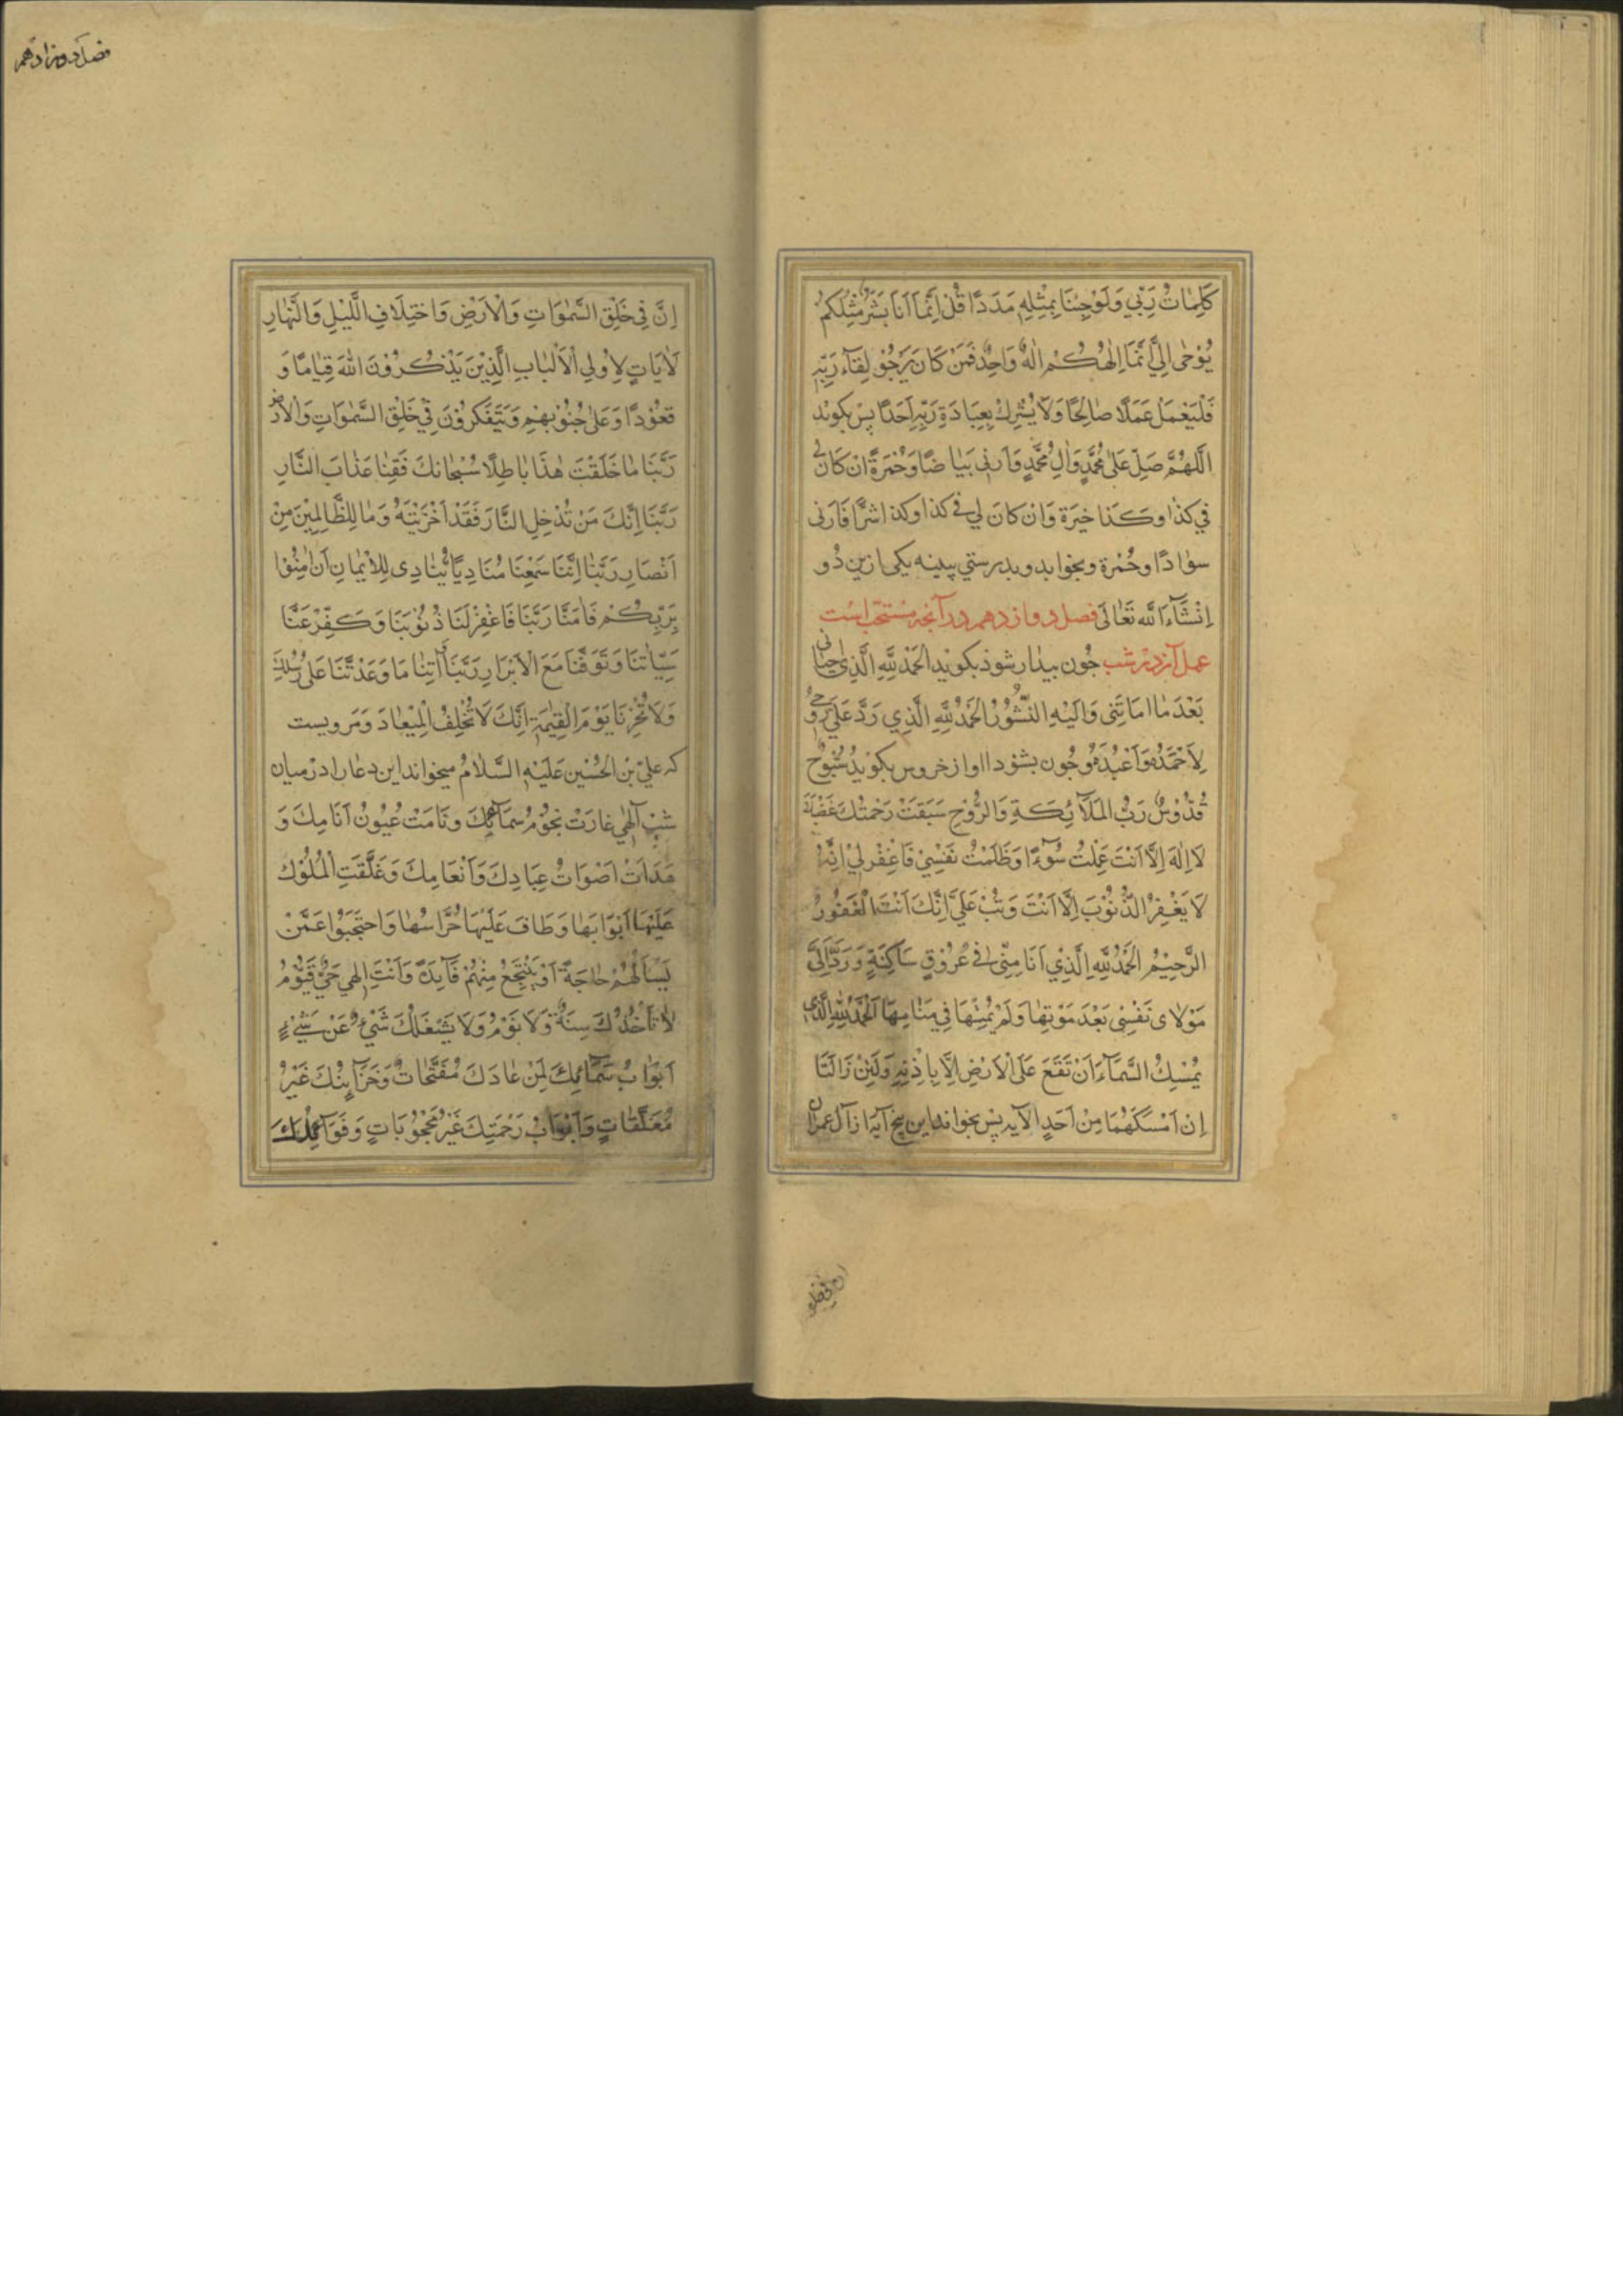 كَلِمَاتُ رَبِّي وَلَوْجِئْنَا بِمِثْلِهِ مَدَدًا قُلْ اِنَّمَا اَنَا بَشَرٌ مِثْلُكُمْ
يُوْحٰى اِلَيَّ اَنَّمَا اِلٰهُكُمْ اِلٰهٌ وَاحِدٌ فَمَنْ كَانَ يَرْجُوْ لِقَآءَ رَبِّهِ
فَلْيَعْمَلْ عَمَلًا صٰالِحًا وَلَا يُشْرِكْ بِعِبَادَةِ رَبِّهِ اَحَدًا پس بكويد
اللّٰهُمَّ صَلِّ عَلٰى مُحَمَّدٍ وَاٰلِ مُحَمَّدٍ وَاَرِنِى بَيٰاضًا وَحُمْرَةً اِنْ كَانَ لِي
فِي كذٰا وكَذا خِيَرَة وَاِنْ كانَ لِي فِي كذا وكذا شرًّا فَاَرِنى
سوٰادًا وحُمْرة وبخوابد وبدرستي ببينه يكى ازين دُو
اِنْشَآءَ اللّه تَعٰالَى فصل دوازدهم در آنچه مستحبّ است
عمل آن در شب چُون بيدار شود بكويد الحَمْدُ لِلّهِ الَّذِي اَحيَانى
بَعْدَ مٰا اَمَاتَنِى وَاِلَيْهِ النُّشُوْرُ الحَمْدُ لِلّهِ الَّذِي رَدَّ عَلَيَّ رُوحِي
لِاَحْمَدَهُ وَاَعْبُدَهُ وچُون بشنود اواز خروس بكويد سُبُّوحٌ
قُدُّوْسٌ رَبُّ المَلَآئِكَةِ وَالرُّوْحِ سَبَقَتْ رَحْمَتُكَ غَضَبَكَ
لَا اِلٰهَ اِلَّا اَنْتَ عَمِلْتُ سُوْٓءًا وَظَلَمْتُ نَفْسِيْ فَاغْفِرْ لِيْ اِنَّهُ
لَا يَغْفِرُ الذُّنُوْبَ اِلَّا اَنْتَ وَتُبْ عَلَيَّ اِنَّكَ اَنْتَ الْغَفُورُ
الرَّحِيْمُ الحَمْدُ لِلّهِ الَّذِي اَنَا مِنِّى فِي عُرُوْقٍ سَاكِنَةٍ وَرَدَّ اِلَيَّ
مَوْلاى نَفْسِى بَعْدَ مَوْتِهٰا وَلَمْ يُمِتْهَا فِي مَنٰامِهَا اَلْحَمْدُ لِلّهِ الَّذى
يُمْسِكُ السَّمَآءَ اَنْ تَقَعَ عَلَى الْاَرْضِ اِلَّا بِاِذْنِهِ وَلَئِنْ زَالَتَا
اِنْ اَمْسَكَهُمَا مِنْ اَحَدٍ الآيه پس بخواند اين پنج آيه از آل عمران
ان في خلق
فصل دوازدهم
اِنَّ فِي خَلْقِ السَّمٰوَاتِ وَالْاَرْضِ وَاخْتِلَافِ اللَّيْلِ وَالنَّهٰارِ
لَاٰيَاتٍ لِاُولِي الْاَلْبٰابِ الَّذِيْنَ يَذْكُرُوْنَ اللّهَ قِيٰامًا وَ
قُعُوْدًا وَعَلٰى جُنُوْبِهِمْ وَيَتَفَكَّرُوْنَ فِيْ خَلْقِ السَّمٰوَاتِ وَالْاَرْضِ
رَبَّنَا مٰا خَلَقْتَ هٰذَا بٰاطِلًا سُبْحٰانَكَ فَقِنٰا عَذٰابَ النَّارِ
رَبَّنَا اِنَّكَ مَنْ تُدْخِلِ النَّارَ فَقَدْ اَخْزَيْتَهُ وَمٰا لِلظَّالِمِيْنَ مِنْ
اَنْصَارٍ رَبَّنٰا اِنَّنَا سَمِعْنَا مُنَادِيًا يُنٰادِى لِلْاِيْمٰانِ اَنْ اٰمِنُوْا
بِرَبِّكُمْ فَاٰمَنَّا رَبَّنَا فَاغْفِرْ لَنَا ذُنُوْبَنَا وَكَفِّرْ عَنَّا
سَيِّاٰتِنَا وَتَوَفَّنَا مَعَ الْاَبْرَارِ رَبَّنَا آتِنٰا مَا وَعَدْتَّنَا عَلٰى رُسُلِكَ
وَلَا تُخْزِنَا يَوْمَ الْقِيٰمَةِ اِنَّكَ لَا تُخْلِفُ الْمِيْعٰادَ ومَرويست
كه عليّ بْن الحُسَيْن عَلَيْهِ السَّلَامُ ميخواند اين دعٰا را در ميان
شب اِلٰهِي غارَتْ نُجُوْمُ سَمَآئِكَ ونَامَتْ عُيُونُ اَنَامِكَ وَ
هَدَاَتْ اَصْوَاتُ عِبَادِكَ وَاَنْعَامِكَ وَغَلَّقَتِ الْمُلُوْكُ
عَلَيْهَا اَبْوَابَهٰا وَطَافَ عَلَيْهَا حُرَّاسُهٰا وَاحْتَجَبُوْا عَمَّنْ
يَسْاَلُهُمْ حٰاجَةً اَوْ يَنْتَجِعُ مِنْهُمْ فَآئِدَةً وَاَنْتَ اِلٰهِي حَيٌّ قَيُّوْمٌ
لَا تَأْخُذُكَ سِنَةٌ وَلَا نَوْمٌ وَلَا يَشْغَلُكَ شَيْءٌ عَنْ شَيْءٍ
اَبْوٰابُ سَمَآئِكَ لِمَنْ دَعَاكَ مُفَتَّحَاتٌ وَخَزَآئِنُكَ غَيْرُ
مُغَلَّقَاتٍ وَاَبْوَابُ رَحْمَتِكَ غَيْرُ مَحْجُوْبَاتٍ وَفَوَآئِدُكَ